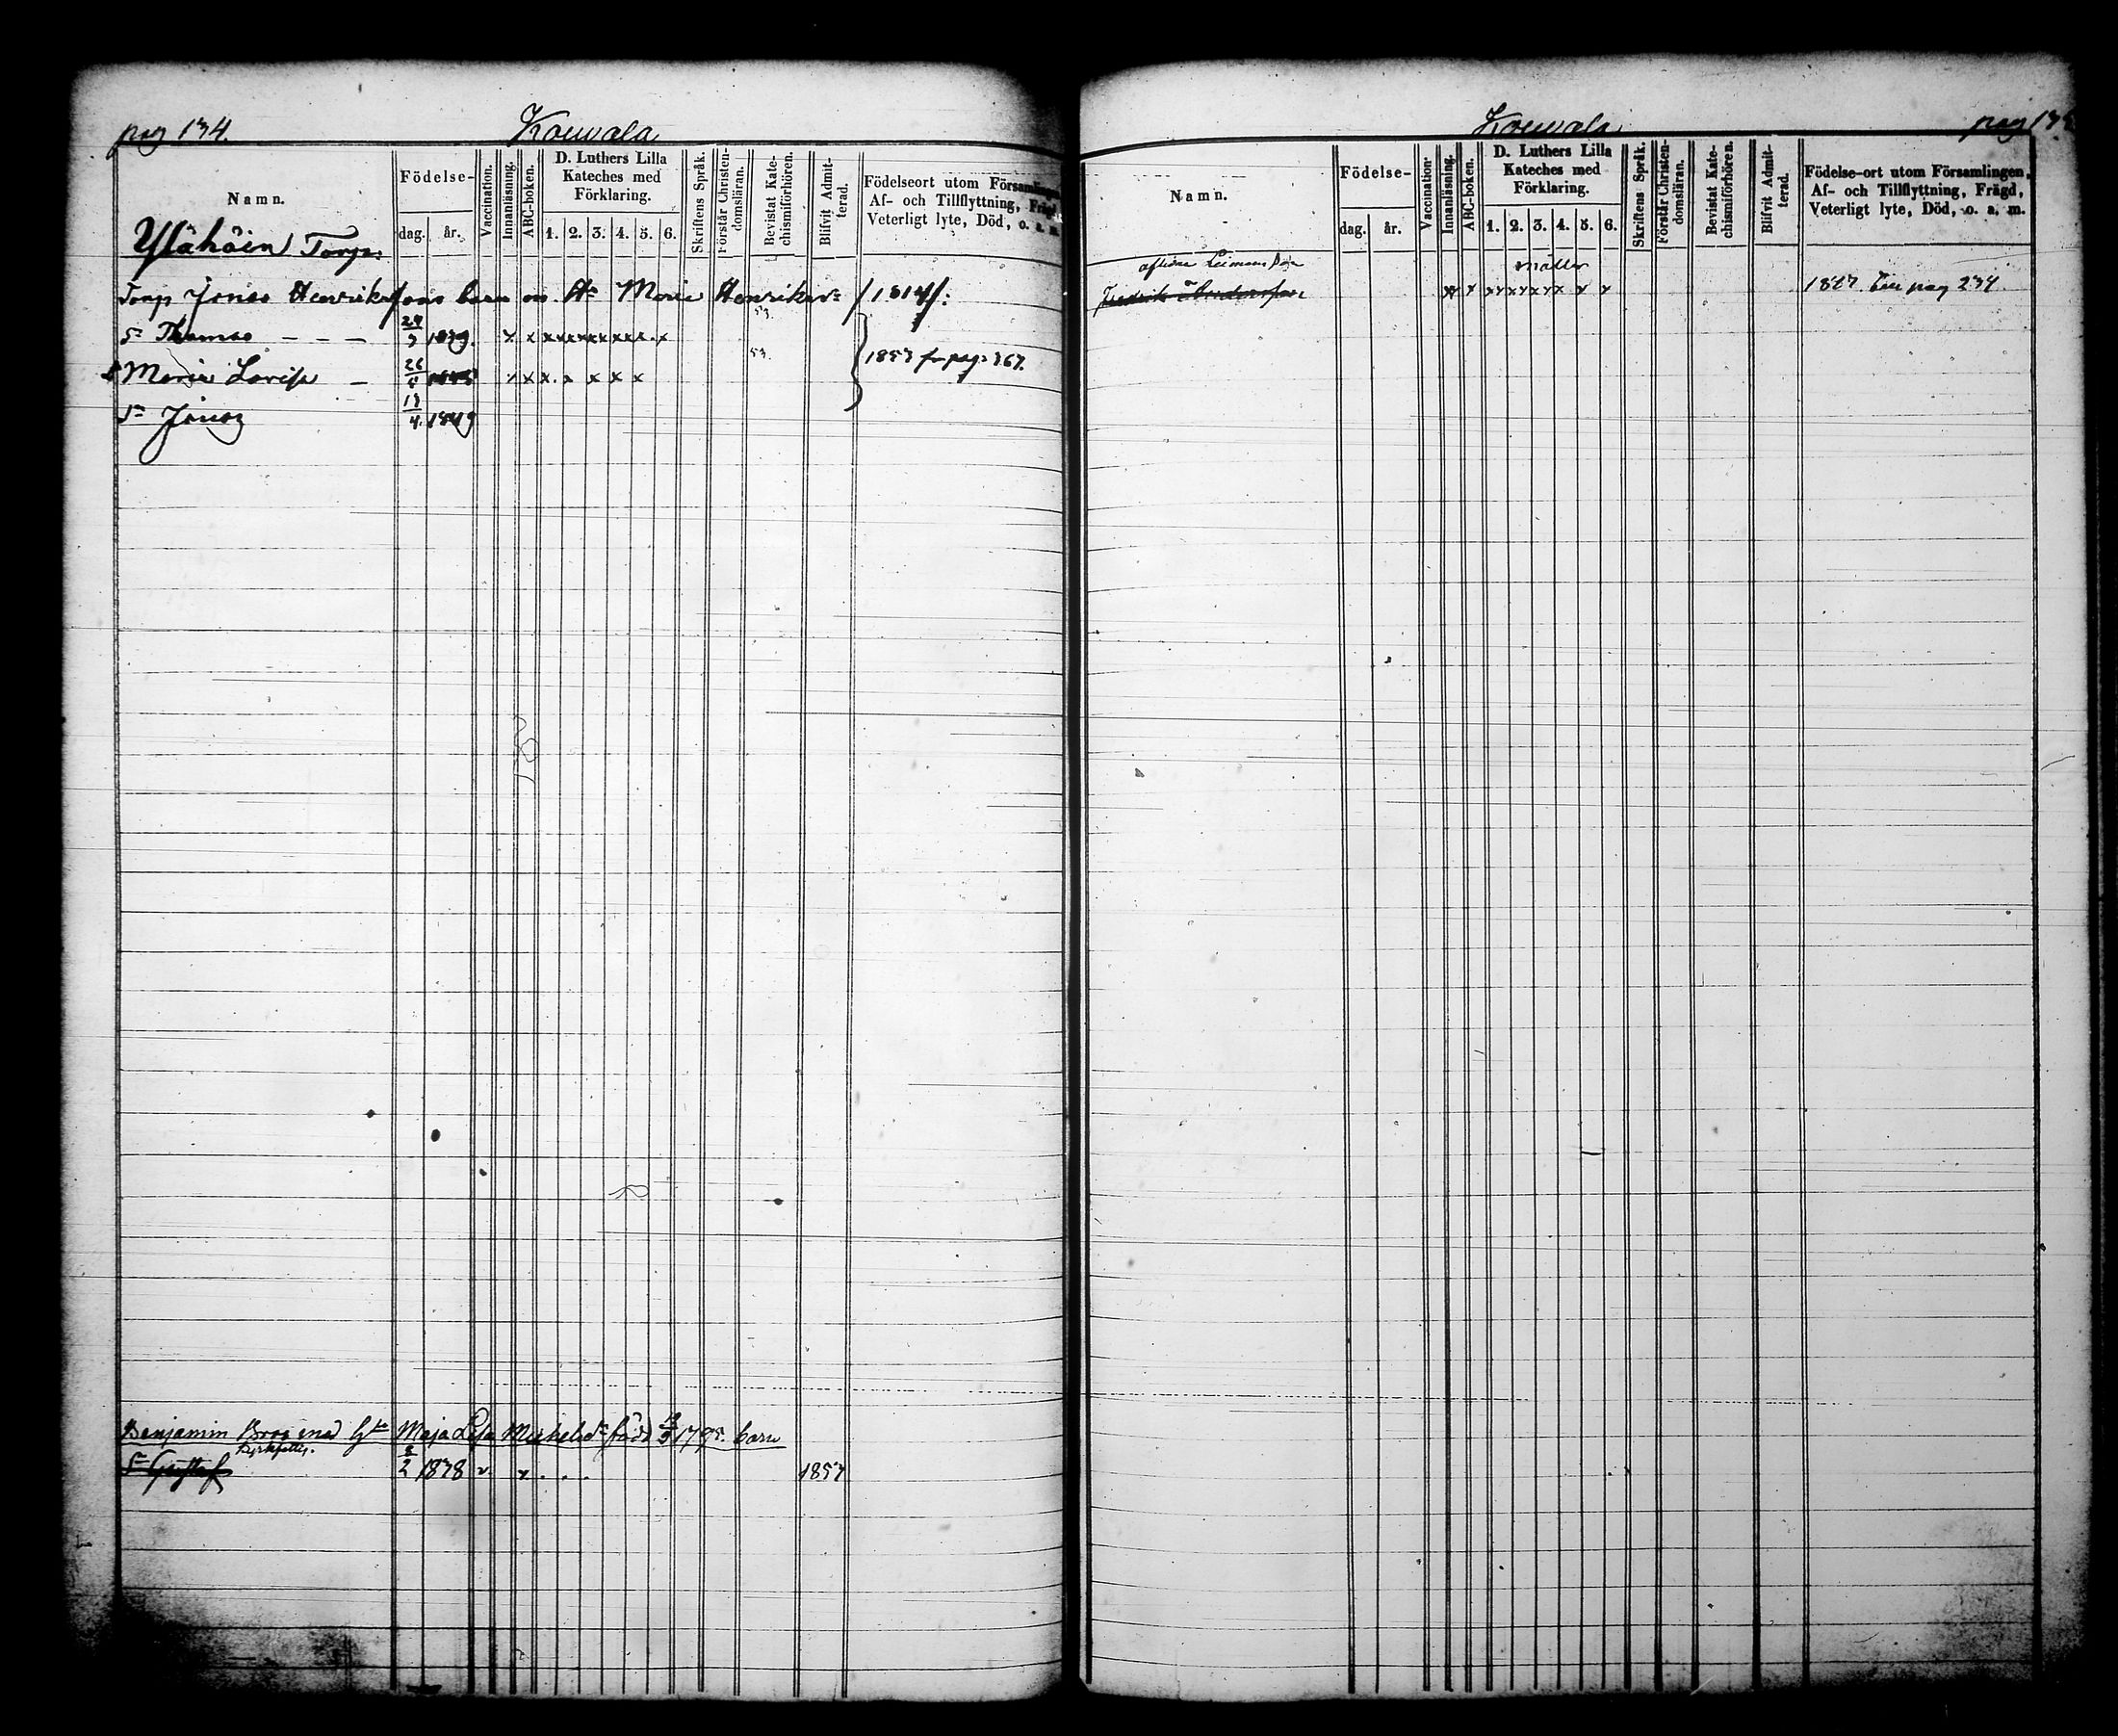 pag 134.
Kouvala
Namn.
Födelse-
dag. år.
Vaccination.
Innanläsning.
ABC-boken.
D. Luthers Lilla Kateches med Förklaring.
1. 2. 3. 4. 5. 6.
Skriftens Språk.
Förstår Christen-domsläran.
Bevistat Kate-chismiförhören.
Blifvit Admit-terad.
Födelseort utom Församlingen,
Af- och Tillflyttning, Frägd,
Veterligt lyte, Död, o. a. m.
Ylähöin Torp:
Torp Jonas Henrikssons barn m. H. Maria Henriksd: /1814/:
Sn Thomas - - - 24/7 1839. x x x x x x x x x 53.
Maria Lovisa - 26 x x x x x x x 53. 1853 fr pag: 367.
Sn Jonas 18/4 1849
Benjamin Broo med Hu Maja Lisa Michelsdr född 1795. barn
Sn Gustaf 2 1838 v. v. . . . 1857
Kouvala
pag 13
Namn.
Födelse-
dag. år.
Vaccination.
Innanläsning.
ABC-boken.
D. Luthers Lilla Kateches med Förklaring.
1. 2. 3. 4. 5. 6.
Skriftens Språk.
Förstår Christen-domsläran.
Bevistat Kate-chismiförhören.
Blifvit Admit-terad.
Födelse-ort utom Församlingen,
Af- och Tillflyttning, Frägd,
Veterligt lyte, Död, o. a. m.
Fredrik x x x x x x x x 1857 pag 234.